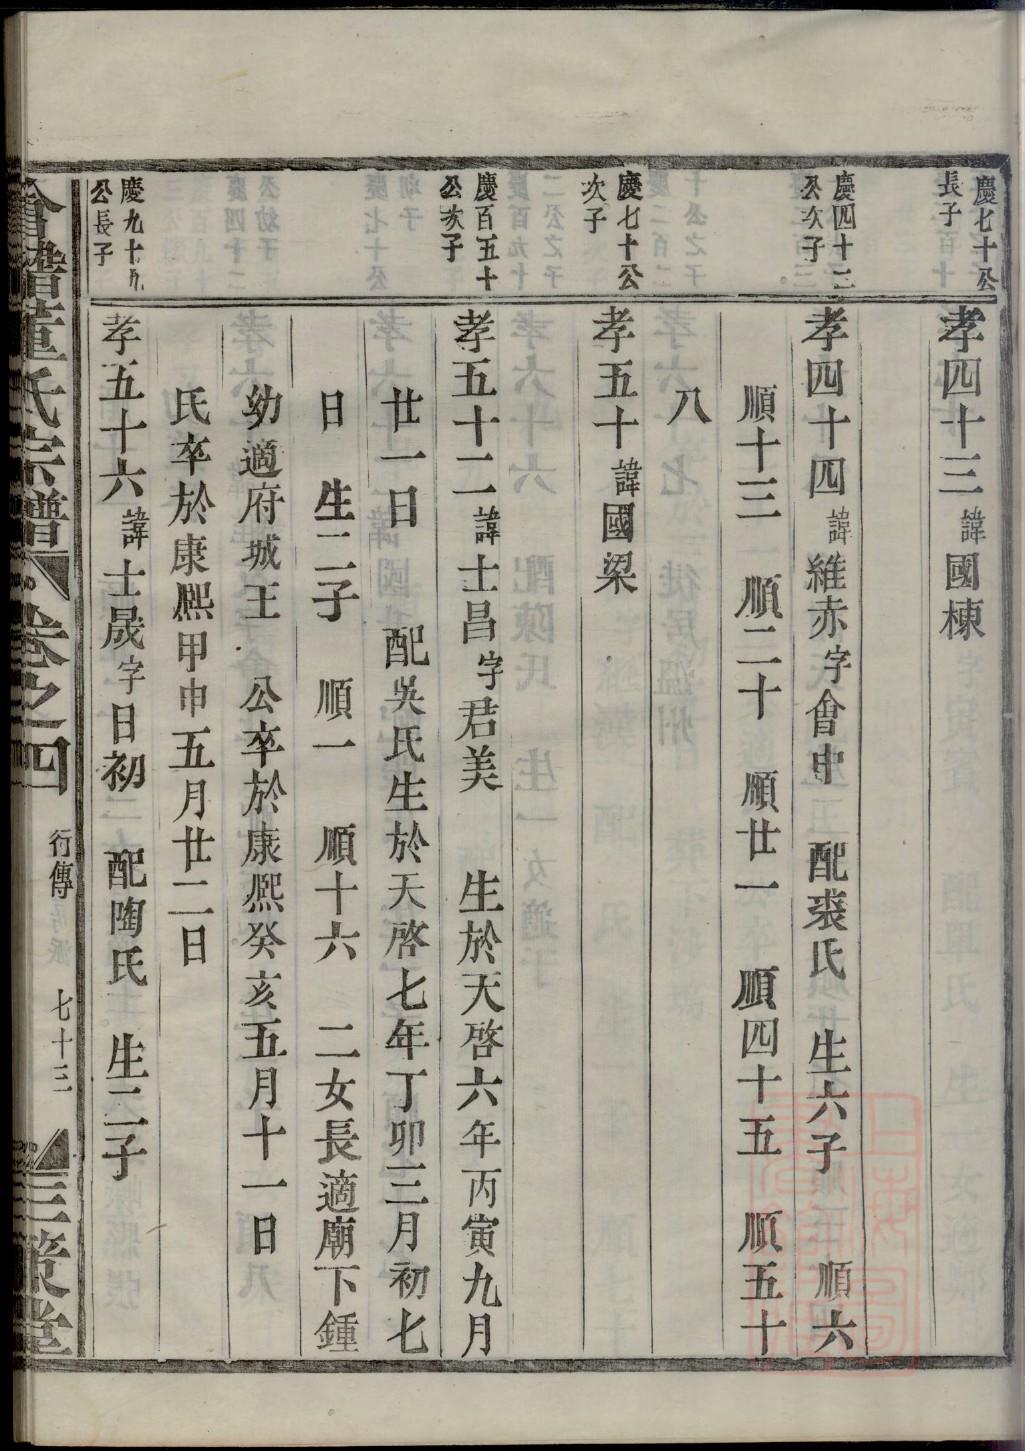 慶七十公
長子
孝四十三諱國棟
慶四十三
公次子
孝四十四諱維赤字會中 配裘氏 生六子 順六
順十三 順二十 順廿一 順四十五 順五十
八
慶七十公
次子
孝五十諱國梁
慶百五十
公次子
孝五十二諱士昌字君美 生於天啓六年丙寅九月
廿一日 配吳氏生於天啓七年丁卯三月初七
日 生二子 順一 順十六 二女長適廟下鍾
幼適府城王 公卒於康熙癸亥五月十一日
氏卒於康熙甲申五月廿二日
慶九十九
公長子
孝五十六諱士晟字日初 配陶氏 生二子
會稽董氏宗譜 卷之四 行傳 七十三 三策堂